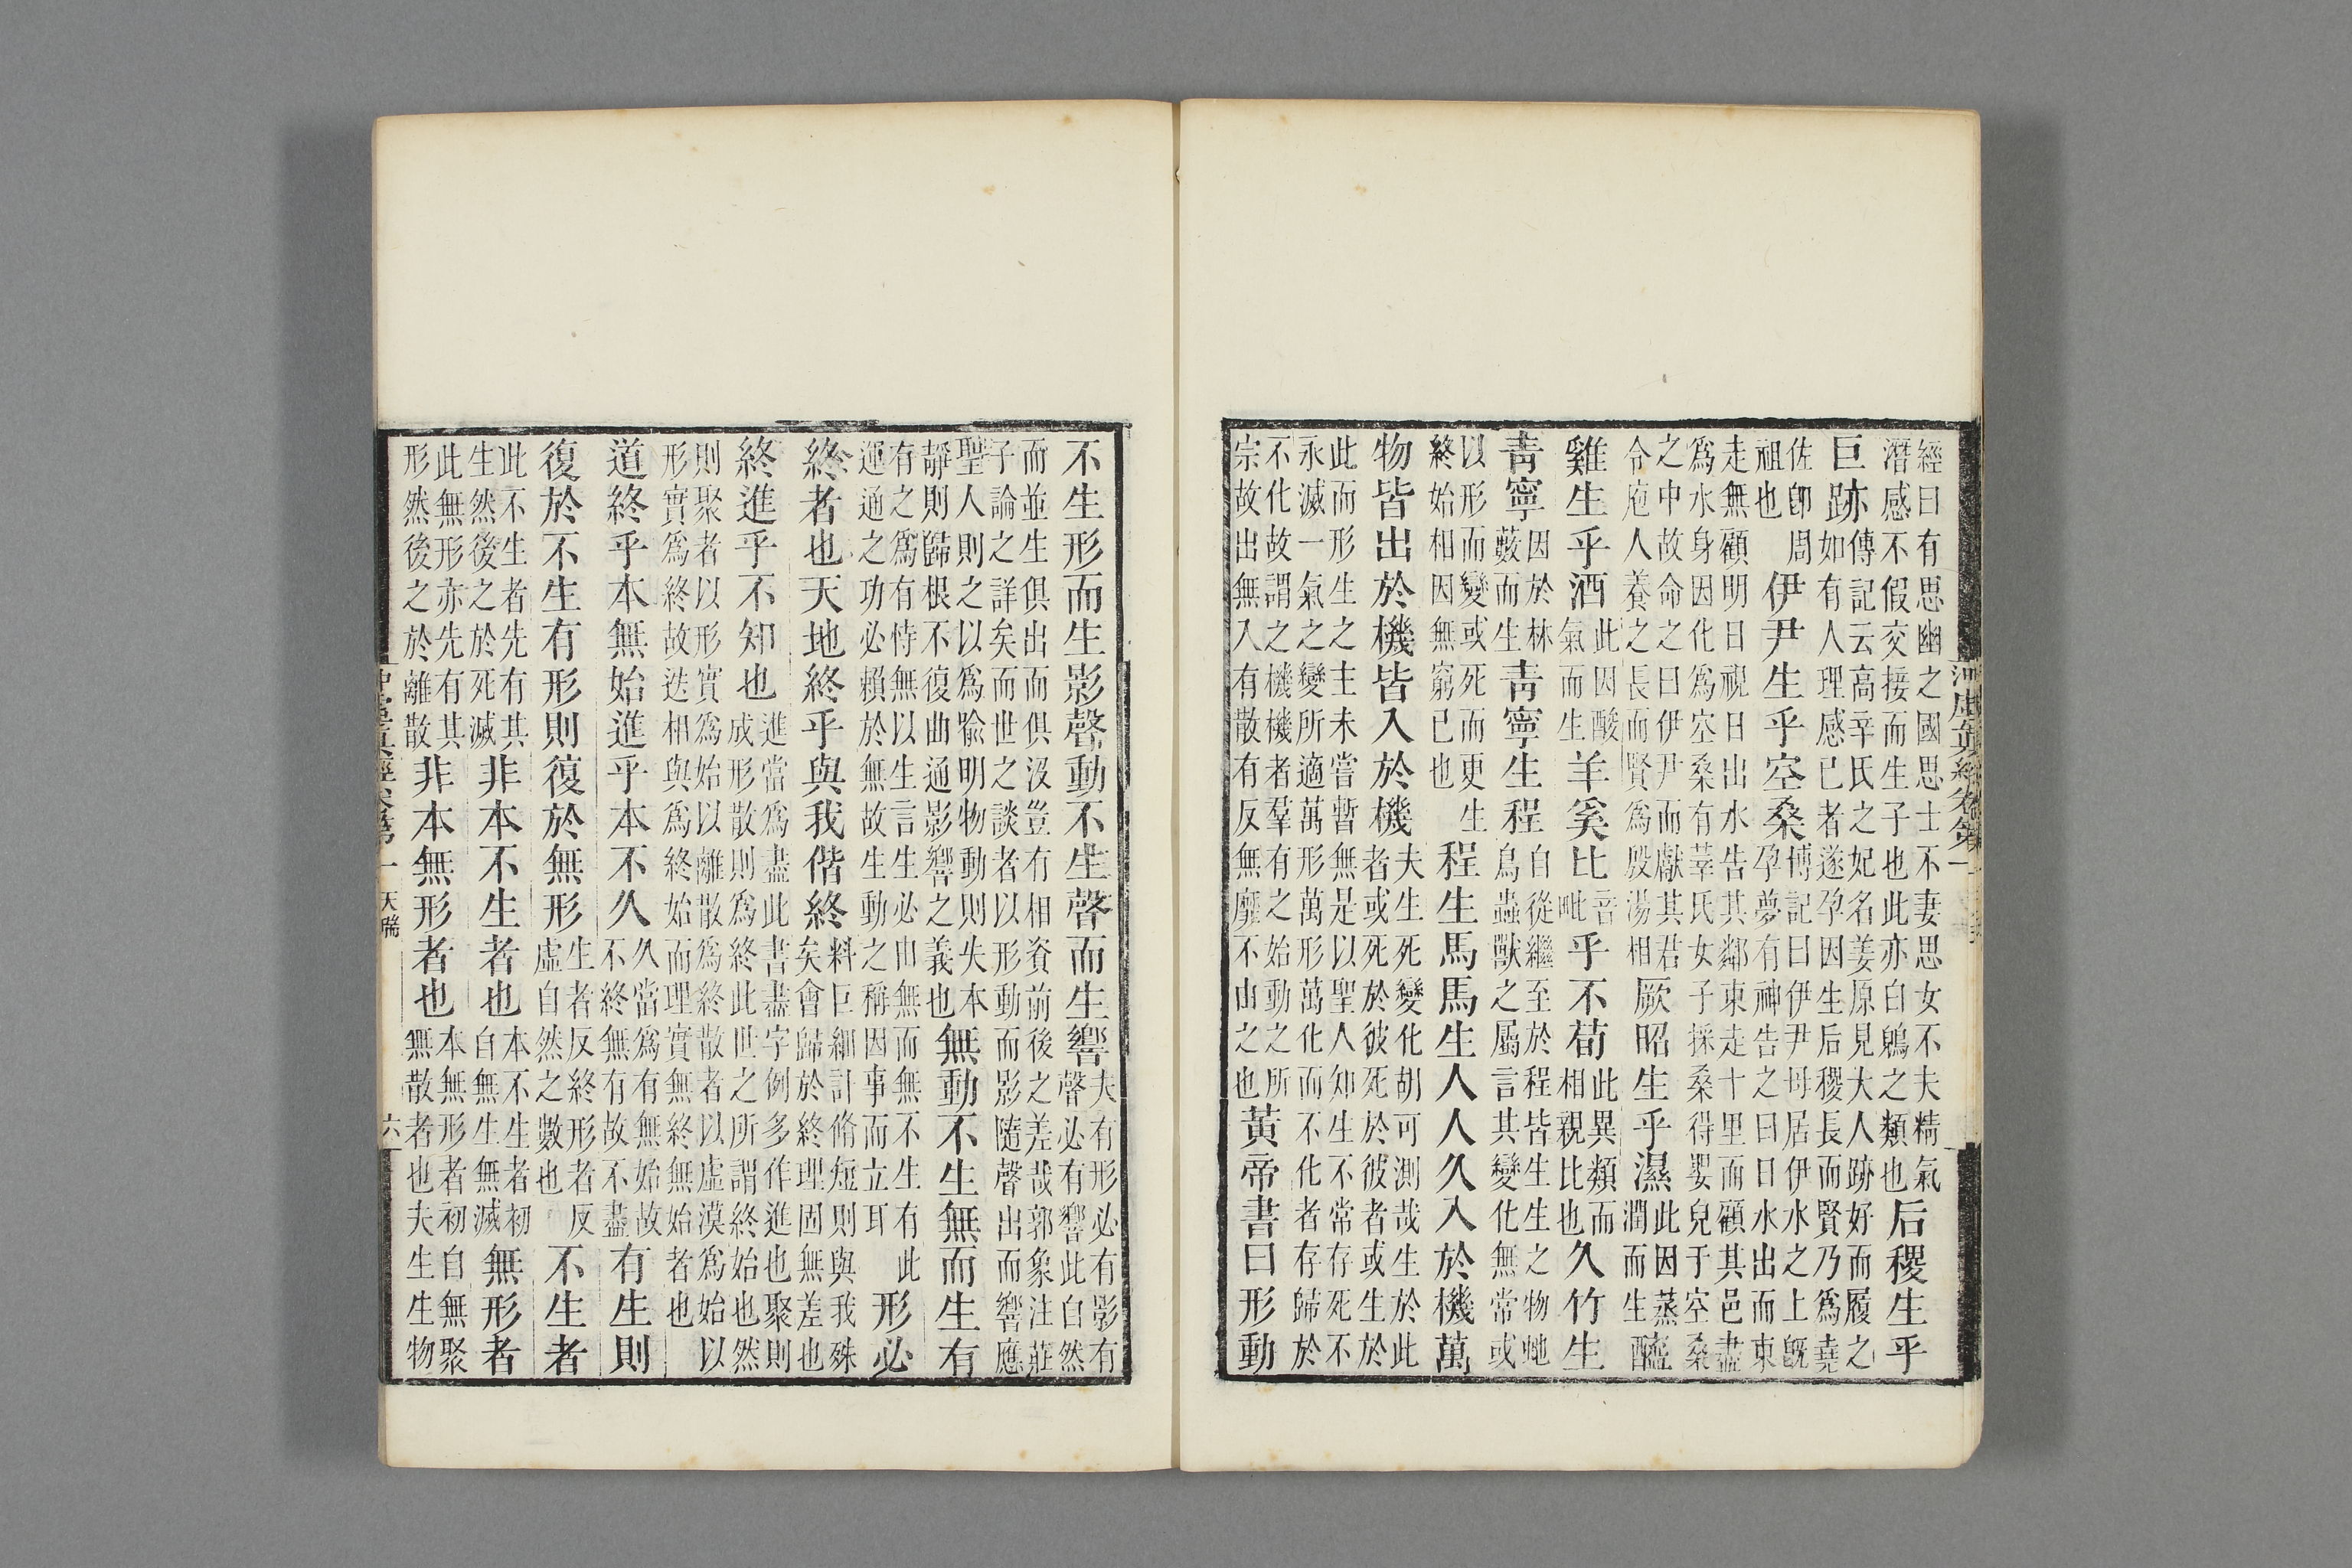 經曰有思幽之國思士不妻思女不夫精氣
潛感不假交接而生子也此亦白鵙之類也
后稷生乎
巨跡
傳記云高辛氏之妃名姜原見大人跡好而履之
如有人理感已者遂孕因生后稷長而賢乃爲堯
佐卽周
祖也
伊尹生乎空桑
博記曰伊尹母居伊水之上旣
孕夢有神告之曰日水出而東
走無顧明日視日出水告其鄰東走十里而顧其邑盡
爲水身因化爲空桑有莘氏女子採桑得嬰兒于空桑
之中故命之曰伊尹而獻其君
令庖人養之長而賢爲殷湯相
厥昭生乎濕
此因蒸
潤而生
醯
雞生乎酒
此因酸
氣而生
羊奚比
音
毗
乎不荀
此異類而
相親比也
久竹生
靑寧
因於林
藪而生
靑寧生程
自從繼至於程皆生生之物虵
鳥蟲獸之屬言其變化無常或
以形而變或死而更生
終始相因無窮已也
程生馬馬生人人久入於機萬
物皆出於機皆入於機
夫生死變化胡可測哉生於此
者或死於彼死於彼者或生於
此而形生之主未嘗暫無是以聖人知生不常存死不
永滅一氣之變所適萬形萬形萬化而不化者存歸於
不化故謂之機機者羣有之始動之所
宗故出無入有散有反無靡不由之也
黃帝書曰形動
不生形而生影聲動不生聲而生響
夫有形必有影有
聲必有響此自然
而並生俱出而俱沒豈有相資前後之差哉郭象注莊
子論之詳矣而世之談者以形動而影隨聲出而響應
聖人則之以爲喻明物動則失本
靜則歸根不復曲通影響之義也
無動不生無而生有
有之爲有恃無以生言生必由無而無不生有此
運通之功必賴於無故生動之稱因事而立耳
形必
終者也天地終乎與我偕終
料巨細計脩短則與我殊
矣會歸於終理固無差也
終進乎不知也
進當爲盡此書盡字例多作進也聚則
成形散則爲終此世之所謂終始也然
則聚者以形實爲始以離散爲終散者以虛漠爲始以
形實爲終故迭相與爲終始而理實無終無始者也
道終乎本無始進乎本不久
久當爲有無始故
不終無有故不盡
有生則
復於不生有形則復於無形
生者反終形者反
虛自然之數也
不生者
此不生者先有其
生然後之於死滅
非本不生者也
本不生者初
自無生無滅
無形者
此無形亦先有其
形然後之於離散
非本無形者也
本無形者初自無聚
無散者也夫生生物
天瑞
六